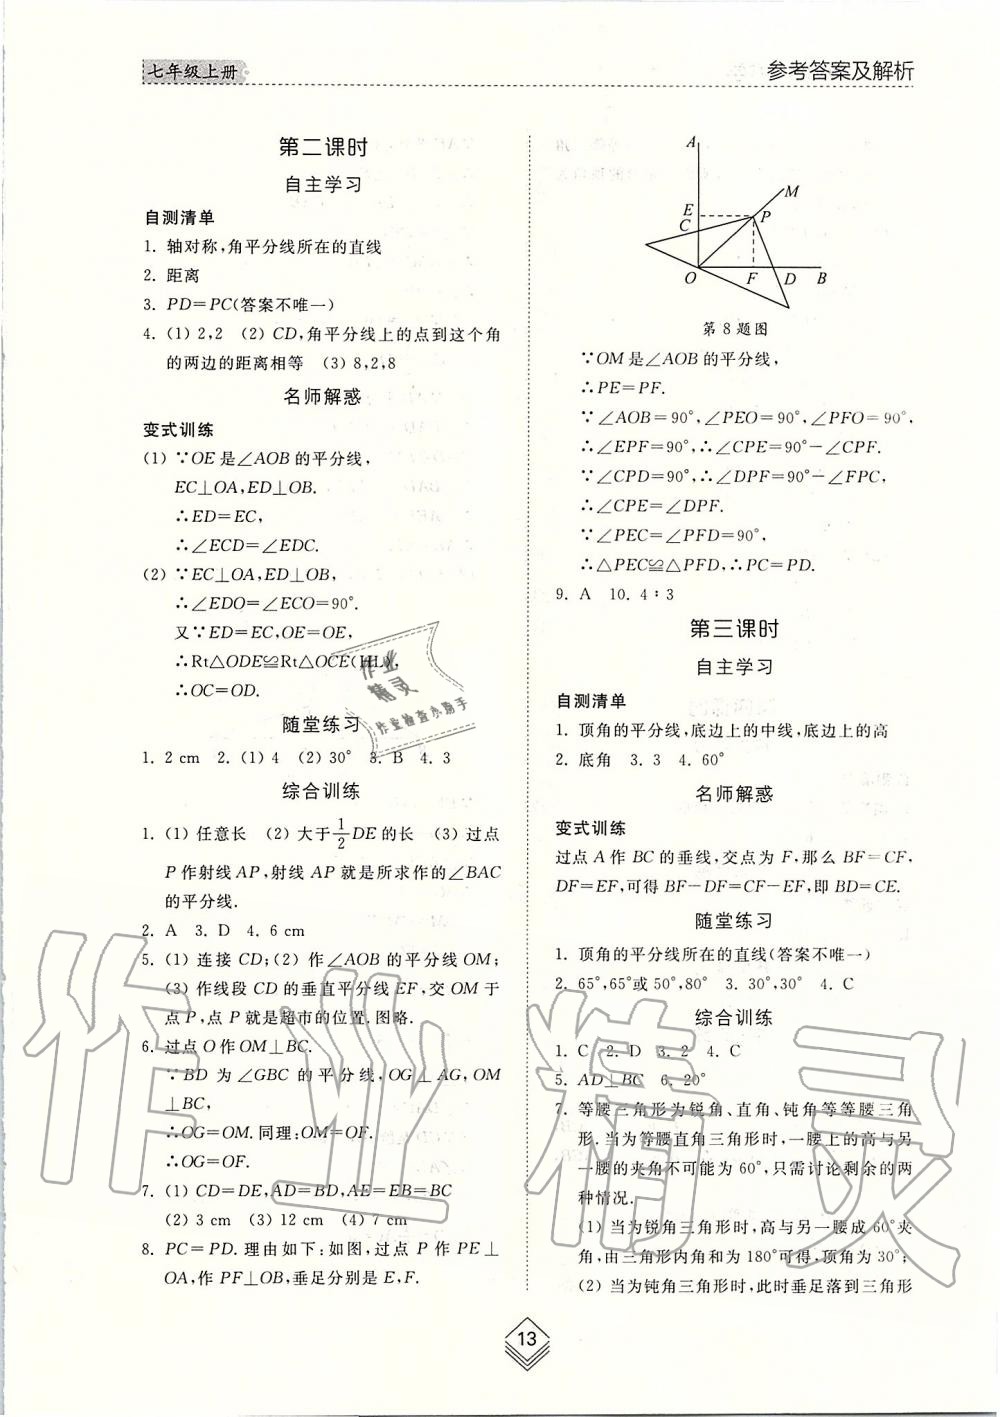 七年级上册
参考答案及解析
第二课时
自主学习
自测清单
1. 轴对称,角平分线所在的直线
2. 距离
3. PD=PC(答案不唯一)
4. (1) 2,2 (2) CD,角平分线上的点到这个角
的两边的距离相等 (3) 8,2,8
名师解惑
变式训练
(1) ∵OE是∠AOB的平分线,
EC⊥OA,ED⊥OB.
∴ED=EC,
∴∠ECD=∠EDC.
(2) ∵EC⊥OA,ED⊥OB,
∴∠EDO=∠ECO=90°.
又∵ED=EC,OE=OE,
∴Rt△ODE≌Rt△OCE(HL),
∴OC=OD.
随堂练习
1. 2 cm 2. (1) 4 (2) 30° 3. B 4. 3
综合训练
1. (1) 任意长 (2) 大于1/2DE的长 (3) 过点
P作射线AP,射线AP就是所求作的∠BAC
的平分线.
2. A 3. D 4. 6 cm
5. (1) 连接CD;(2) 作∠AOB的平分线OM;
(3) 作线段CD的垂直平分线EF,交OM于
点P,点P就是超市的位置.图略.
6. 过点O作OM⊥BC.
∵BD为∠GBC的平分线,OG⊥AG,OM
⊥BC,
∴OG=OM.同理:OM=OF.
∴OG=OF.
7. (1) CD=DE,AD=BD,AE=EB=BC
(2) 3 cm (3) 12 cm (4) 7 cm
8. PC=PD.理由如下:如图,过点P作PE⊥
OA,作PF⊥OB,垂足分别是E,F.
A
M
E
P
C
O
F
D
B
第8题图
∵OM是∠AOB的平分线,
∴PE=PF.
∵∠AOB=90°,∠PEO=90°,∠PFO=90°,
∴∠EPF=90°,∴∠CPE=90°-∠CPF.
∵∠CPD=90°,∴∠DPF=90°-∠FPC,
∴∠CPE=∠DPF.
∵∠PEC=∠PFD=90°,
∴△PEC≌△PFD,∴PC=PD.
9. A 10. 4∶3
第三课时
自主学习
自测清单
1. 顶角的平分线,底边上的中线,底边上的高
2. 底角 3. 3 4. 60°
名师解惑
变式训练
过点A作BC的垂线,交点为F,那么BF=CF,
DF=EF,可得BF-DF=CF-EF,即BD=CE.
随堂练习
1. 顶角的平分线所在的直线(答案不唯一)
2. 65°,65°或50°,80° 3. 30°,30° 4. C
综合训练
1. C 2. D 3. 2 4. C
5. AD⊥BC 6. 20°
7. 等腰三角形为锐角、直角、钝角等等腰三角
形.当为等腰直角三角形时,一腰上的高与另
一腰的夹角不可能为60°,只需讨论剩余的两
种情况.
(1) 当为锐角三角形时,高与另一腰成60°夹
角,由三角形内角和为180°可得,顶角为30°;
(2) 当为钝角三角形时,此时垂足落到三角形
13
作业精灵
作业
精灵
作业检查小助手